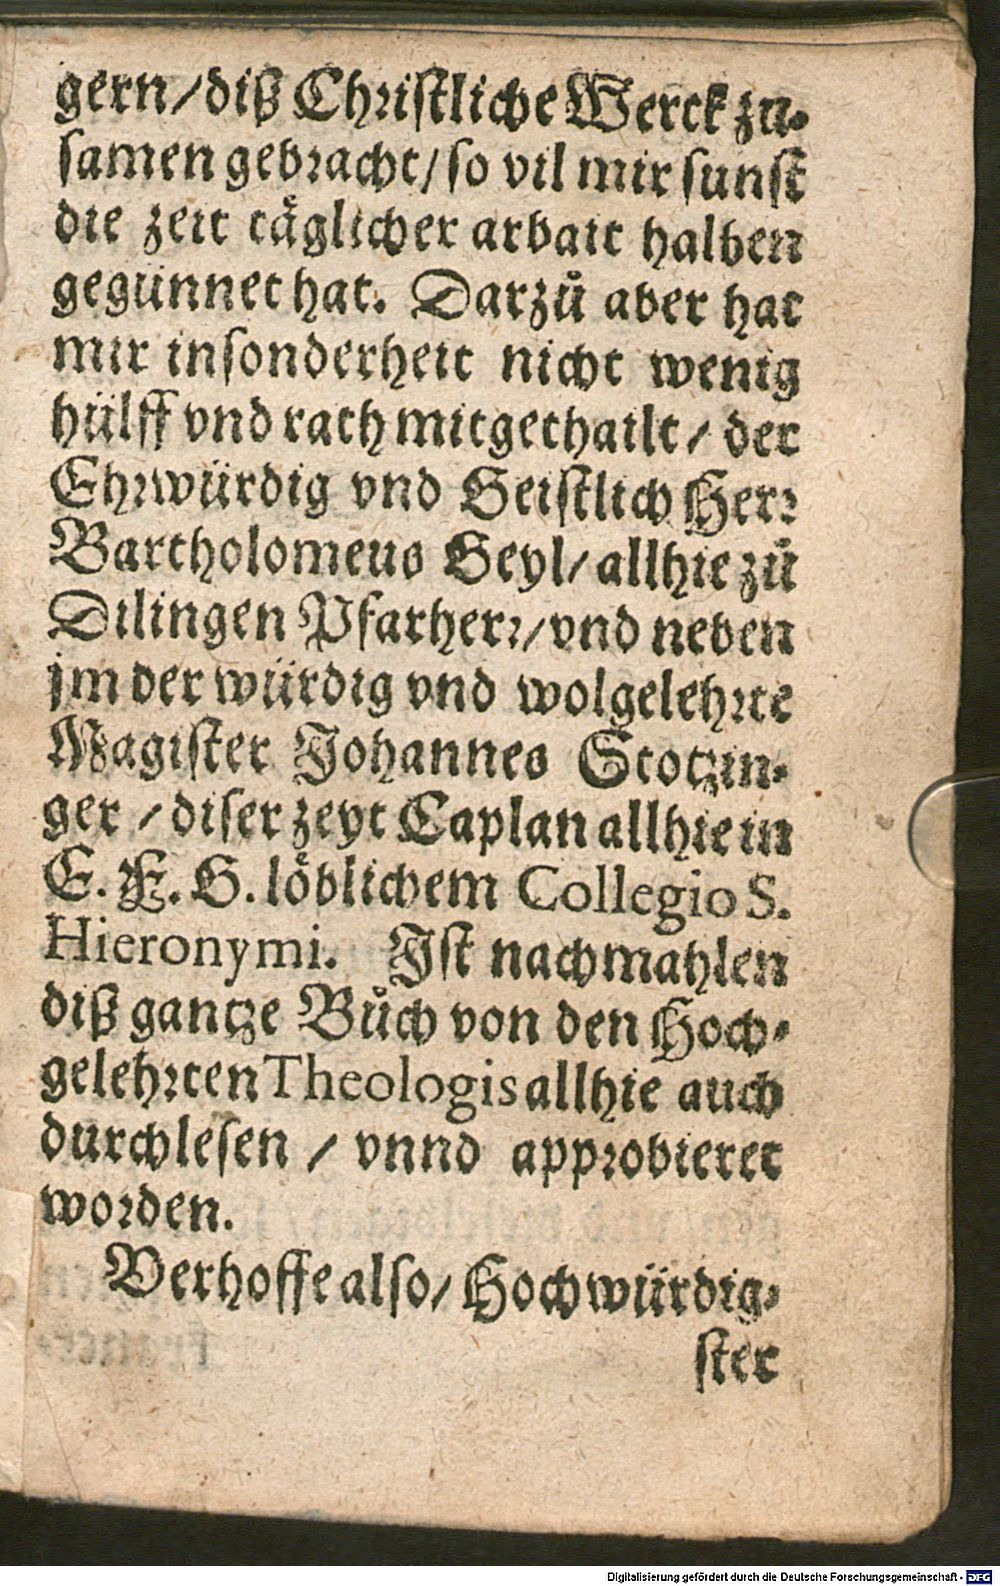 gern/diß Christliche Werck zu-
samen gebracht/so vil mir sunst
die zeit täglicher arbait halben
gegünnet hat. Darzů aber hat
mir insonderheit nicht wenig
hülff vnd rath mitgethailt/ der
Ehrwürdig vnd Geistlich Herr
Bartholomeus Geyl/ allhie zů
Dilingen Pfarherr/vnd neben
jm der würdig vnd wolgelehrte
Magister Johannes Stotzin-
ger / diser zeyt Caplan allhie in
E. F. G. löblichem Collegio S.
Hieronymi. Ist nachmahlen
diß gantze Bůch von den Hoch-
gelehrten Theologis allhie auch
durchlesen / vnnd approbieret
worden.
Verhoffe also/ Hochwürdig-
ster
Digitalisierung gefördert durch die Deutsche Forschungsgemeinschaft - DFG